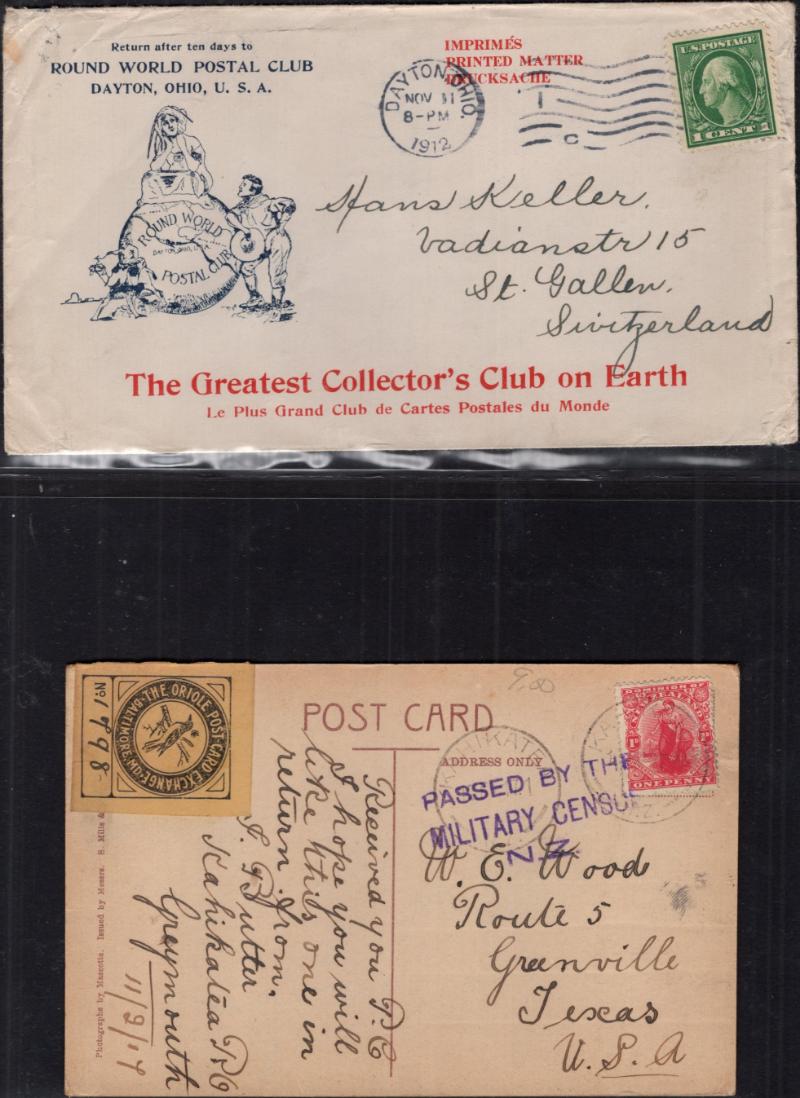 Return after ten days to
ROUND WORLD POSTAL CLUB
DAYTON, OHIO, U. S. A.
IMPRIMÉS
PRINTED MATTER
DRUCKSACHE
DAYTON, OHIO
NOV 11
8-PM
1912
1
C
U.S. POSTAGE
1 CENT 1
ROUND WORLD
DAYTON, OHIO, U.S.A.
POSTAL CLUB
Hans Keller.
Vadianstr 15
St. Gallen.
Switzerland
The Greatest Collector's Club on Earth
Le Plus Grand Club de Cartes Postales du Monde
THE ORIOLE POST CARD EXCHANGE
BALTIMORE MD
No 1898
9.00
POST CARD
ADDRESS ONLY
DOMINION OF
NEW ZEALAND
ONE PENNY
KAHIKATE
N.Z.
PASSED BY THE
MILITARY CENSOR
N.Z.
Received you P.C
I hope you will
like this one in
return from.
J. Butter
Kahikatea P.O
Greymouth
11/2/17
W. E. Wood
Route 5
Greenville
Texas
U. S. A
Photographs by Mascotte. Issued by Messrs. S. Mills &